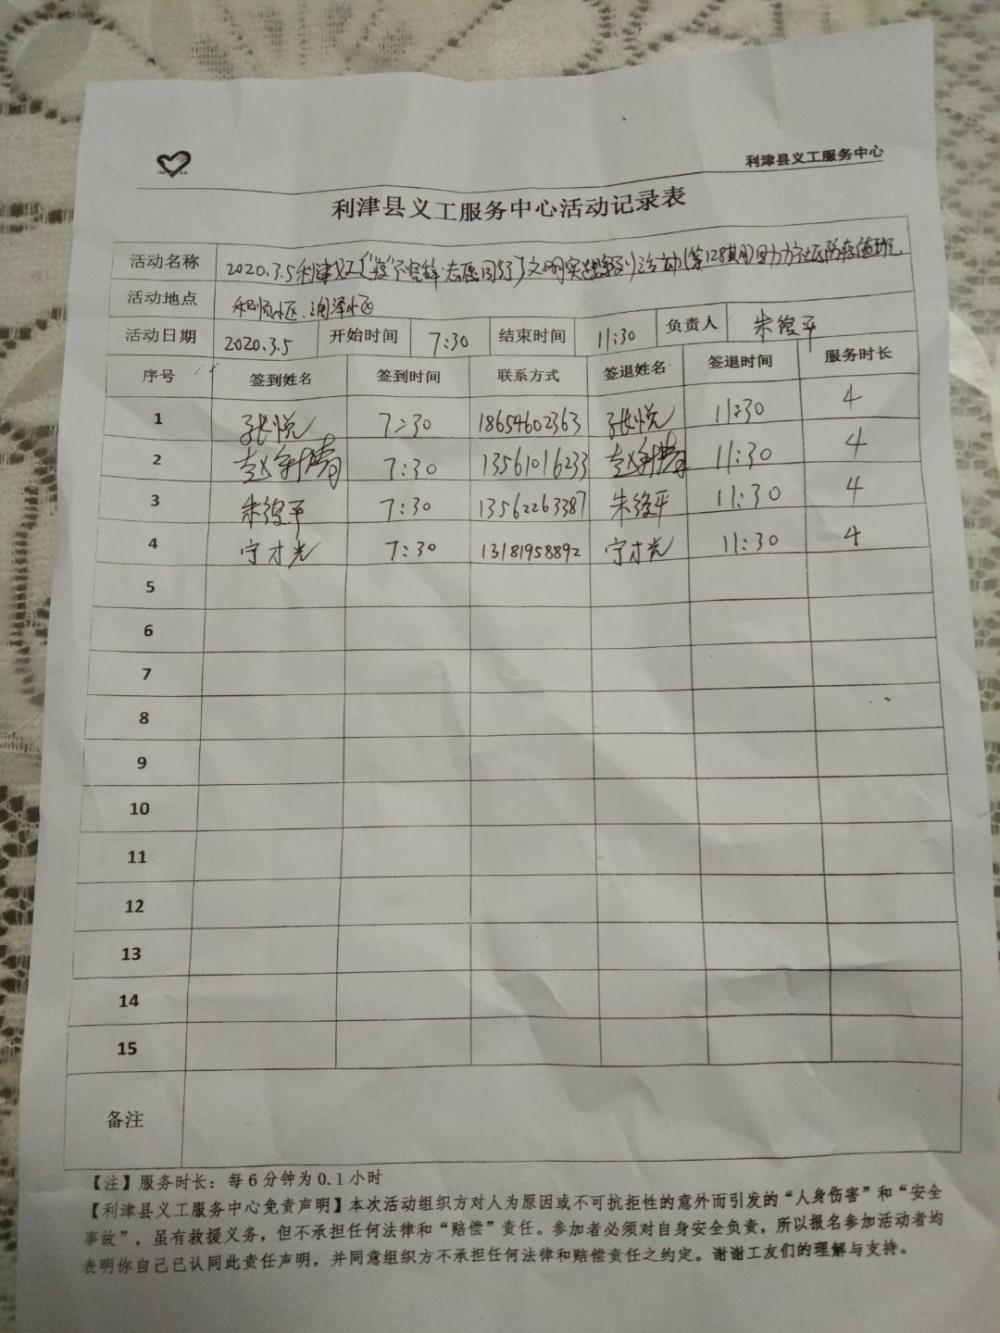 利津县义工服务中心
利津县义工服务中心活动记录表
活动名称 2020.3.5利津义工“疫”不容辞·志愿同行 文明实践系列活动(第128期)助力社区防疫值班
活动地点 和顺小区、润泽小区
活动日期 2020.3.5 开始时间 7:30 结束时间 11:30 负责人 朱俊平
序号 签到姓名 签到时间 联系方式 签退姓名 签退时间 服务时长
1 张悦 7:30 18654602363 张悦 11:30 4
2 赵 7:30 13561016233 赵 11:30 4
3 朱俊平 7:30 13562263387 朱俊平 11:30 4
4 宁才光 7:30 13181958892 宁才光 11:30 4
5
6
7
8
9
10
11
12
13
14
15
备注
【注】服务时长：每6分钟为0.1小时
【利津县义工服务中心免责声明】本次活动组织方对人为原因或不可抗拒性的意外而引发的“人身伤害”和“安全
事故”，虽有救援义务，但不承担任何法律和“赔偿”责任。参加者必须对自身安全负责，所以报名参加活动者均
表明你自己已认同此责任声明，并同意组织方不承担任何法律和赔偿责任之约定。谢谢工友们的理解与支持。